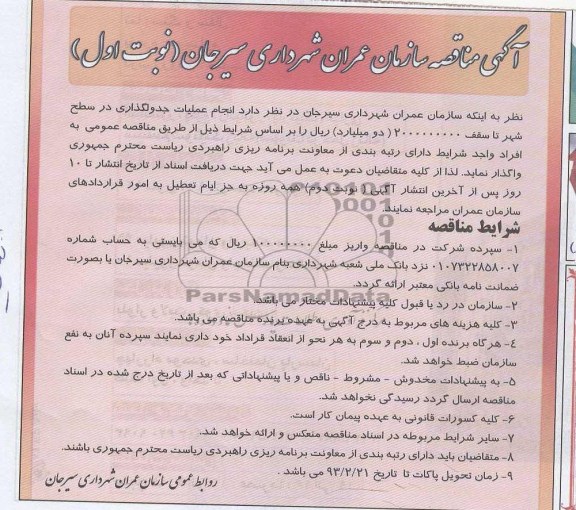 آگهی مناقصه سازمان عمران شهرداری سیرجان (نوبت اول)
نظر به اینکه سازمان عمران شهرداری سیرجان در نظر دارد انجام عملیات جدولگذاری در سطح
شهر تا سقف ۲۰۰۰۰۰۰۰۰۰ ( دو میلیارد) ریال را بر اساس شرایط ذیل از طریق مناقصه عمومی به
افراد واجد شرایط دارای رتبه بندی از معاونت برنامه ریزی راهبردی ریاست محترم جمهوری
واگذار نماید. لذا از کلیه متقاضیان دعوت به عمل می آید جهت دریافت اسناد از تاریخ انتشار تا ۱۰
روز پس از آخرین انتشار آگهی ( نوبت دوم) همه روزه به جز ایام تعطیل به امور قراردادهای
سازمان عمران مراجعه نمایند.
شرایط مناقصه
۱- سپرده شرکت در مناقصه واریز مبلغ ۱۰۰۰۰۰۰۰۰ ریال که می بایستی به حساب شماره
۰۱۰۷۳۲۲۸۵۸۰۰۷ نزد بانک ملی شعبه شهرداری بنام سازمان عمران شهرداری سیرجان یا بصورت
ضمانت نامه بانکی معتبر ارائه گردد.
ParsNamadData
۲- سازمان در رد یا قبول کلیه پیشنهادات مختار می باشد.
۳- کلیه هزینه های مربوط به درج آگهی به عهده برنده مناقصه می باشد.
۴- هرگاه برنده اول ، دوم و سوم به هر نحو از انعقاد قراداد خود داری نمایند سپرده آنان به نفع
سازمان ضبط خواهد شد.
۵- به پیشنهادات مخدوش - مشروط - ناقص و یا پیشنهاداتی که بعد از تاریخ درج شده در اسناد
مناقصه ارسال گردد رسیدگی نخواهد شد.
۶- کلیه کسورات قانونی به عهده پیمان کار است.
۷- سایر شرایط مربوطه در اسناد مناقصه منعکس و ارائه خواهد شد.
۸- متقاضیان باید دارای رتبه بندی از معاونت برنامه ریزی راهبردی ریاست محترم جمهوری باشند.
۹- زمان تحویل پاکات تا تاریخ ۹۳/۲/۲۱ می باشد .
روابط عمومی سازمان عمران شهرداری سیرجان